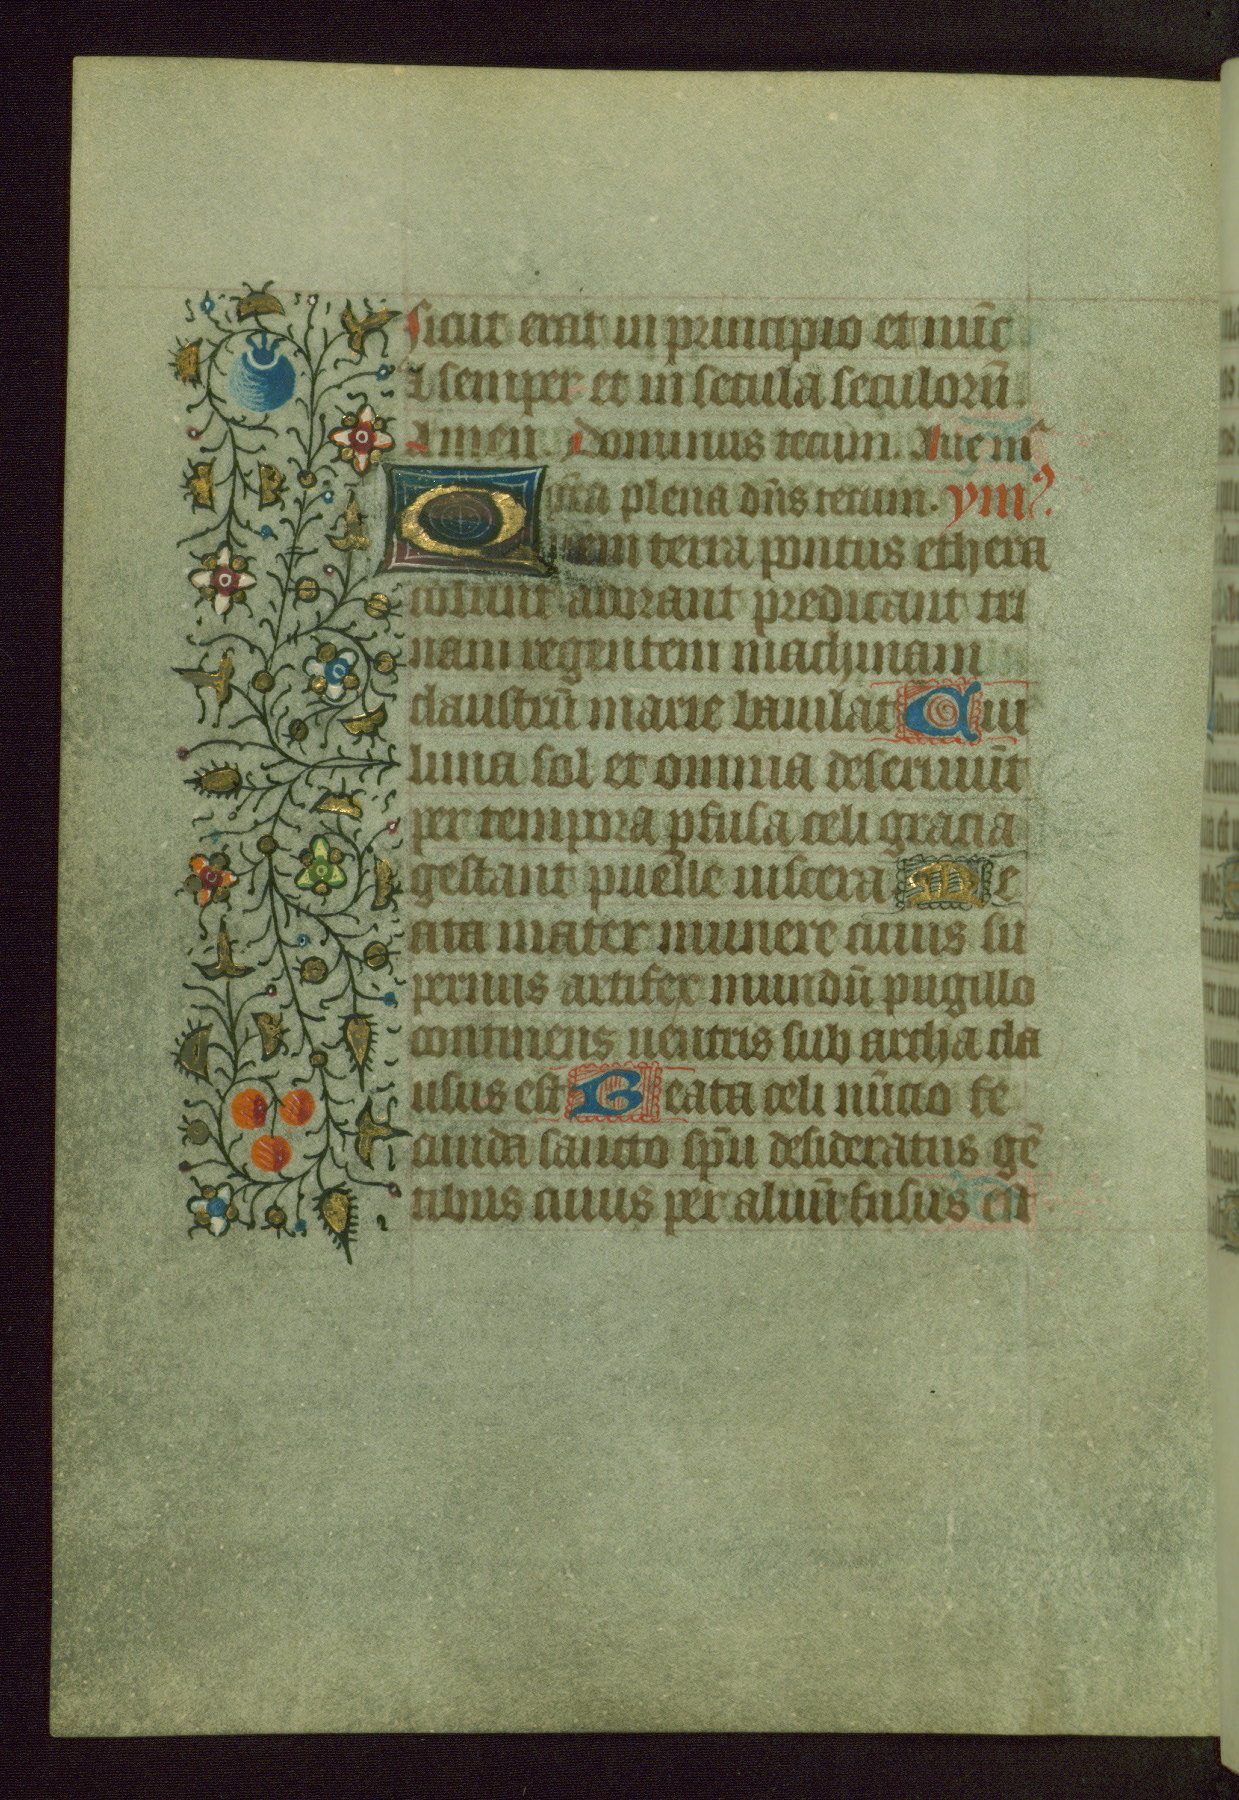 sicut erat in principio et nūc
⁊ semper et in secula seculorū.
Amen. Dominus tecum. Aue mᵃ
gr̄a plena dn̄s tecum. ymꝰ
Quem terra pontus ethera
colunt adorant predicant tri
nam regentem machinam
claustrū marie baiulat Cui
luna sol et omnia deseruiūt
per tempora pfusa celi gracia
gestant puelle uiscera Be
ata mater munere cuius su
pernus artifex mundū pugillo
continens uentris sub archa cla
usus est Beata celi nūcio fe
cunda sancto sp̄u desideratus gē
tibus cuius per aluū fusus est